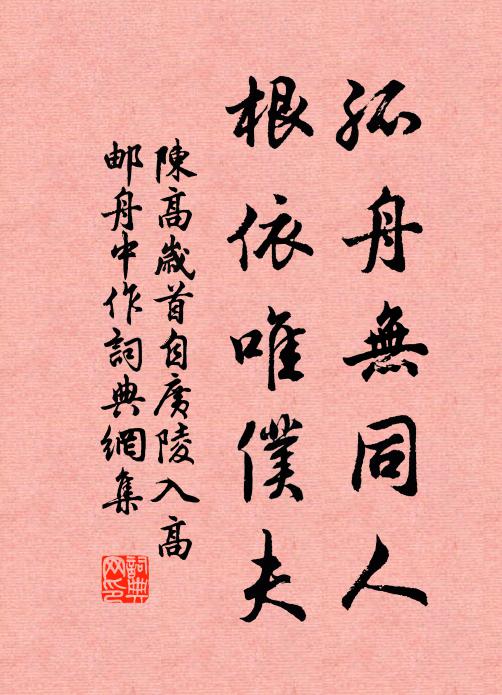 孤舟無同人
根依唯僕夫
陳高歲首自廣陵入高
邮舟中作詞典網集
詞典
网印